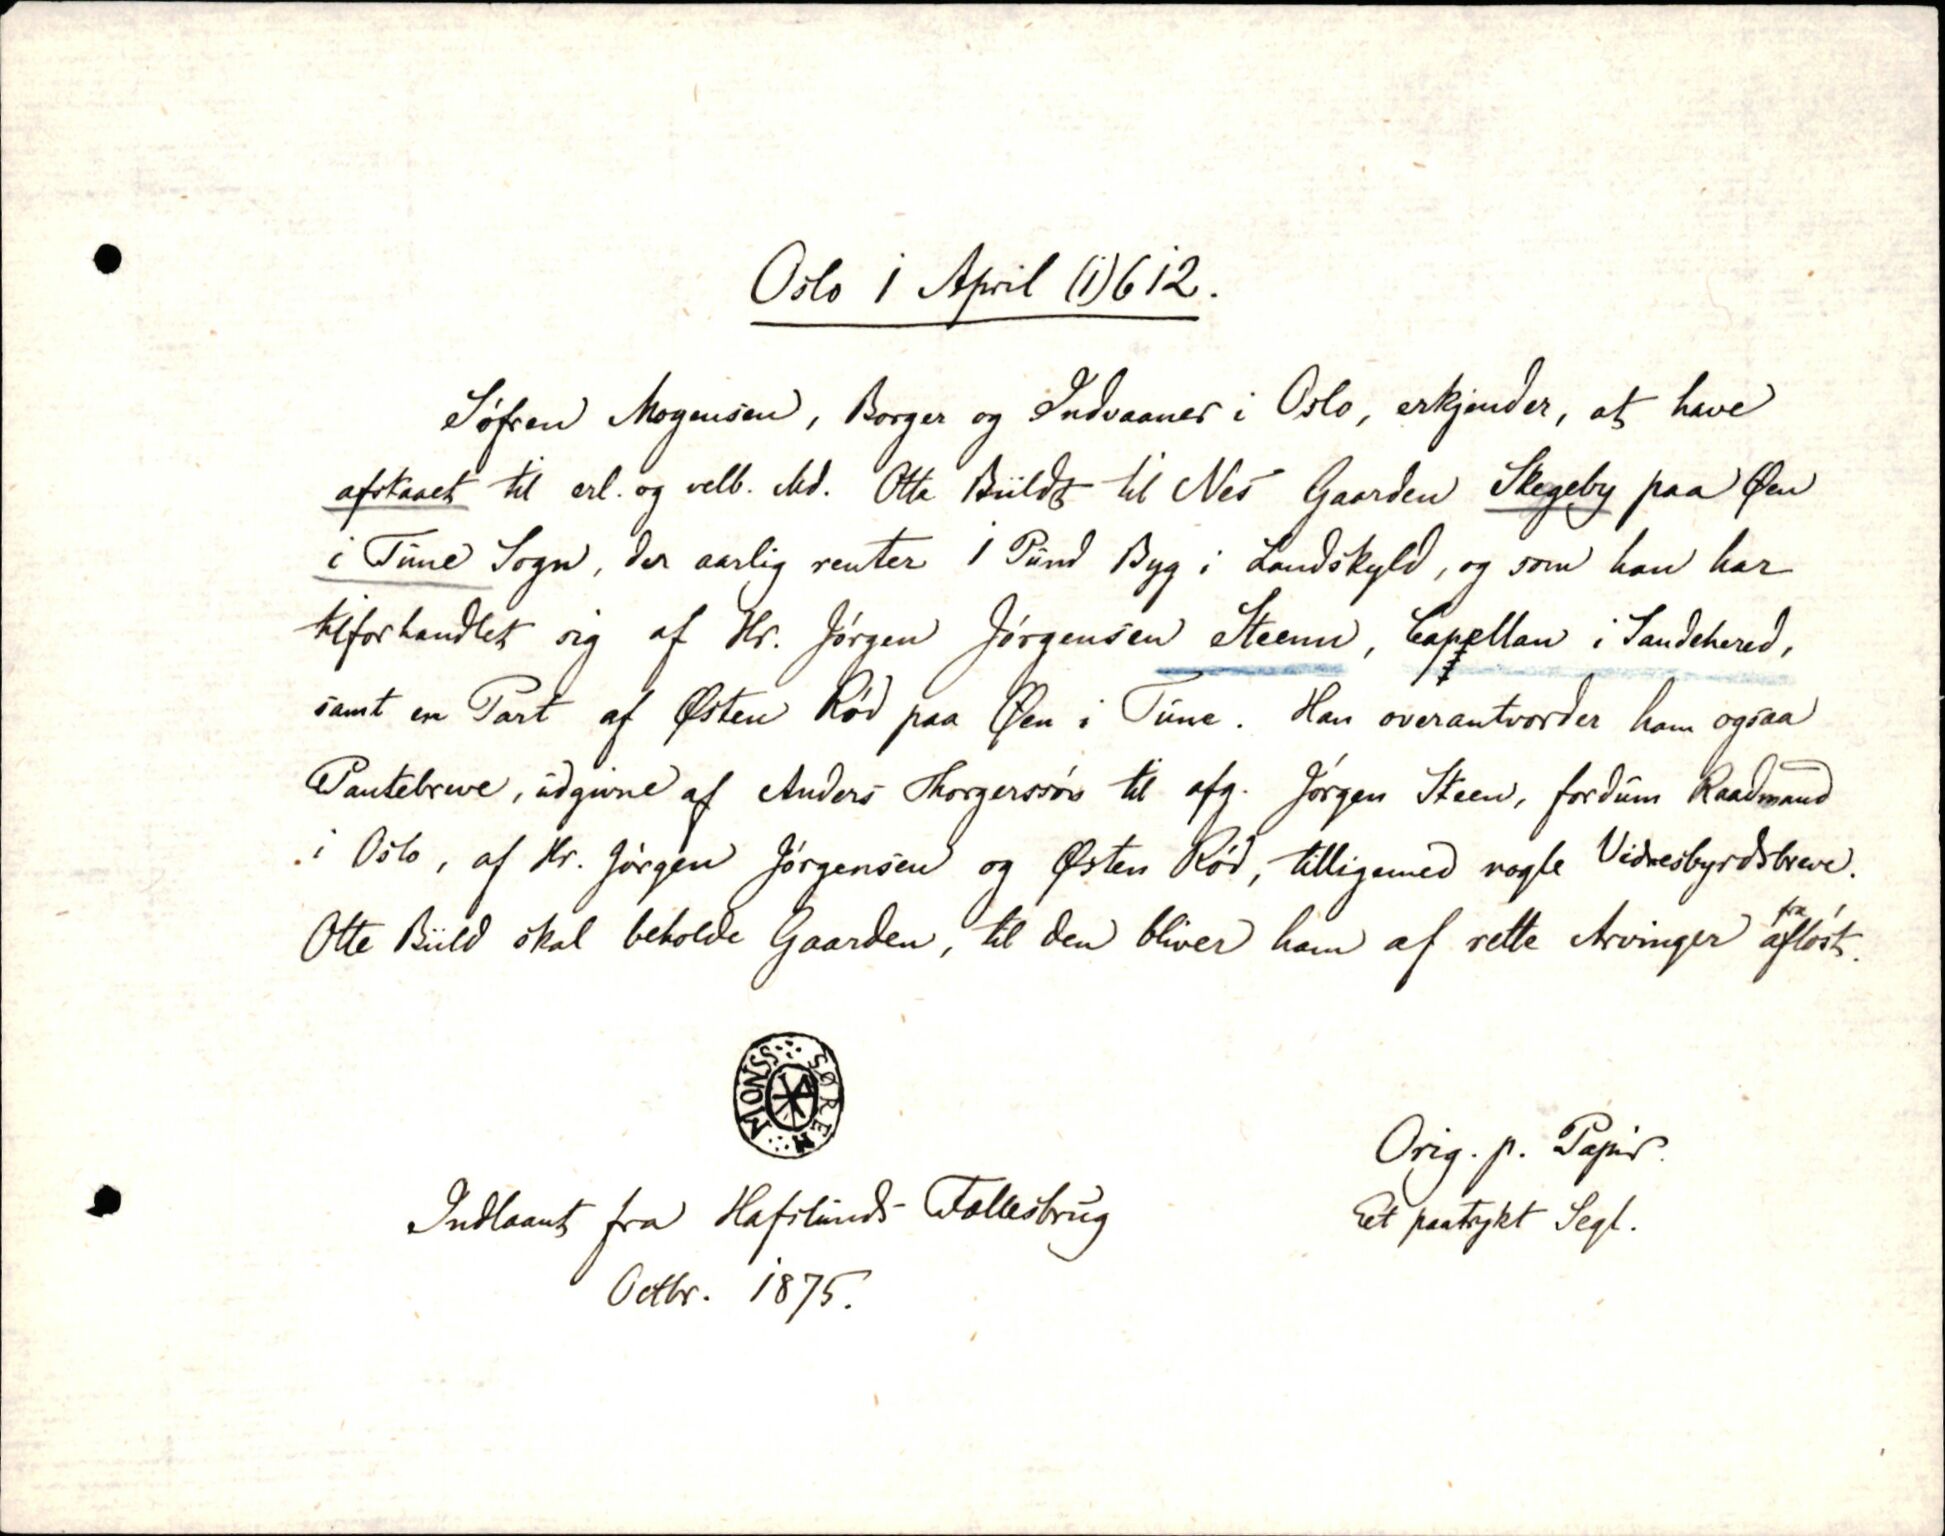 Oslo 1 April (1)612.
Söfren Mogensen, Borger og Indvaaner i Oslo, erkjender, at have
afstaaet til erl. og velb. Md. Otte Büldt til Nes Gaarden Skegeby paa Øen
i Tune Sogn, der aarlig renter 1 Pund Byg i Landskyld, og som han har
tilforhandlet sig af Hr. Jörgen Jörgensen Steenn, Capellan i Sandehered,
samt en Part af Østen Röd paa Øen i Tune. Han overantvorder ham ogsaa
Pantebreve, udgivne af Anders Thorgerssön til afg. Jörgen Steen, fordum Raadmand
i Oslo, af Hr. Jörgen Jörgensen og Østen Röd, tilligemed nogle Vidnesbyrdsbreve.
Otte Büld skal beholde Gaarden, til den bliver ham af rette Arvinger fra aflöst.
SØREN MONSS
Orig. p. Papir.
Indlaant fra Hafslunds Fællesbrug
Eet paatrykt Segl.
Octbr. 1875.